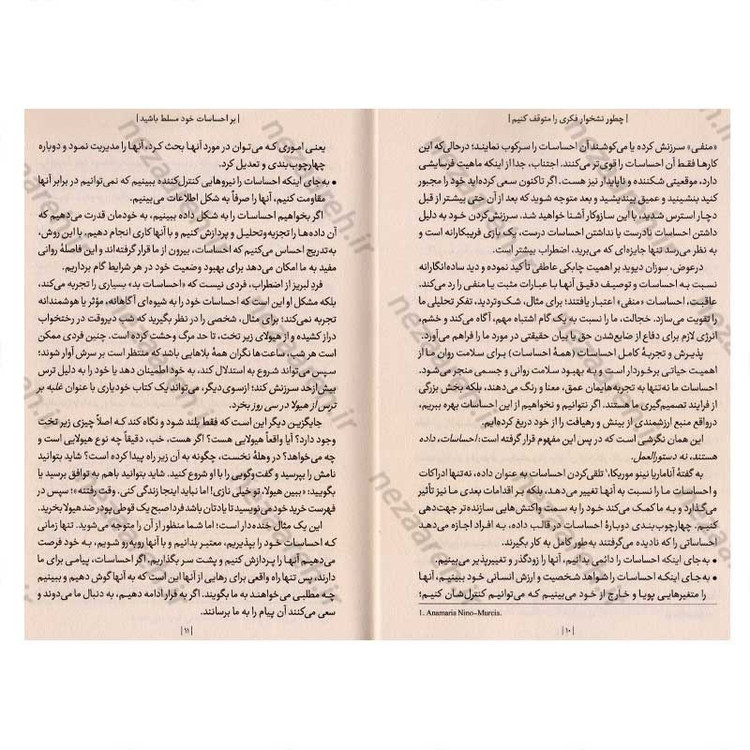 | چطور نشخوار فکری را متوقف کنیم |
«منفی» سرزنش کرده یا می‌کوشند آن احساسات را سرکوب نمایند؛ درحالی‌که این
کارها فقط آن احساسات را قوی‌تر می‌کنند. اجتناب، جدا از اینکه ماهیت فرسایشی
دارد، موقعیتی شکننده و ناپایدار نیز هست. اگر تاکنون سعی کرده‌اید خود را مجبور
کنید بنشینید و عمیق بیندیشید و بعد متوجه شوید که بعد از آن حتی بیشتر از قبل
دچار استرس شدید، با این سازوکار آشنا خواهید شد. سرزنش‌کردن خود به دلیل
داشتن احساسات نادرست یا نداشتن احساسات درست، یک بازی فریبکارانه است و
به نظر می‌رسد تنها جایزه‌ای که می‌برید، اضطراب بیشتر است.
درعوض، سوزان دیوید بر اهمیت چابکی عاطفی تأکید نموده و دید ساده‌انگارانه
نسبت به احساسات و توصیف دقیق آنها با عبارات مثبت یا منفی را رد می‌کند.
عاقبت، احساسات «منفی» اعتبار یافتند؛ برای مثال، شک‌وتردید، تفکر تحلیلی ما
را تقویت می‌سازد. خجالت، ما را نسبت به یک گام اشتباه مهم، آگاه می‌کند و خشم،
انرژی لازم برای دفاع از ضایع‌شدن حق یا بیان حقیقتی در مورد ما را فراهم می‌آورد.
پذیرش و تجربهٔ کامل احساسات (همهٔ احساسات) برای سلامت روان ما از
اهمیت حیاتی برخوردار است و به بهبود سلامت روانی و جسمی منجر می‌شود.
احساسات ما نه‌تنها به تجربه‌هایمان عمق، معنا و رنگ می‌دهند، بلکه بخش بزرگی
از فرایند تصمیم‌گیری ما هستند. اگر نتوانیم و نخواهیم از این احساسات بهره ببریم،
درواقع منبع ارزشمندی از بینش و رهیافت را از خود دریغ کرده‌ایم.
این همان نگرشی است که در پس این مفهوم قرار گرفته است: احساسات، داده
هستند، نه دستورالعمل.
به گفتهٔ آناماریا نینو موریکا،۱ تلقی‌کردن احساسات به عنوان داده، نه‌تنها ادراکات
و احساسات ما را نسبت به آنها تغییر می‌دهد، بلکه بر اقدامات بعدی ما نیز تأثیر
می‌گذارد و به ما کمک می‌کند خود را به سمت واکنش‌هایی سازنده‌تر جهت‌دهی
کنیم. چهارچوب‌بندی دوبارهٔ احساسات در قالب داده، به افراد اجازه می‌دهد
احساساتی را که نادیده می‌گرفتند به‌طور کامل به کار بگیرند.
• به جای اینکه احساسات را دائمی بدانیم، آنها را زودگذر و تغییرپذیر می‌بینیم.
• به جای اینکه احساسات را شواهد شخصیت و ارزش انسانی خود ببینیم، آنها
را متغیرهایی پویا و خارج از خود می‌بینیم که می‌توانیم کنترل‌شان کنیم؛
1. Anamaria Nino-Murcia.
| ۱۰ |
| بر احساسات خود مسلط باشید |
یعنی اموری که می‌توان در مورد آنها بحث کرد، آنها را مدیریت نمود و دوباره
چهارچوب‌بندی و تعدیل کرد.
• به جای اینکه احساسات را نیروهایی کنترل‌کننده ببینیم که نمی‌توانیم در برابر آنها
مقاومت کنیم، آنها را صرفاً به شکل اطلاعات می‌بینیم.
اگر بخواهیم احساسات را به شکل داده ببینیم، به خودمان قدرت می‌دهیم که
آن داده‌ها را تجزیه‌وتحلیل و پردازش کنیم و با آنها کاری انجام دهیم. با این روش،
به‌تدریج احساس می‌کنیم که احساسات، بیرون از ما قرار گرفته‌اند و این فاصلهٔ روانی
مفید به ما امکان می‌دهد برای بهبود وضعیت خود در هر شرایط گام برداریم.
فردِ لبریز از اضطراب، فردی نیست که «احساسات بد» بسیاری را تجربه می‌کند،
بلکه مشکل او این است که احساسات خود را به شیوه‌ای آگاهانه، مؤثر یا هوشمندانه
تجربه نمی‌کند؛ برای مثال، شخصی را در نظر بگیرید که شب دیروقت در رختخواب
دراز کشیده و از هیولای زیر تخت، تا حد مرگ وحشت کرده است. چنین فردی ممکن
است هر شب، ساعت‌ها نگران همهٔ بلاهایی باشد که منتظر است بر سرش آوار شوند؛
سپس می‌تواند شروع به استدلال کند، به خود اطمینان دهد یا خود را به دلیل ترس
بیش‌ازحد سرزنش کند؛ ازسوی‌دیگر، می‌تواند یک کتاب خودیاری با عنوان غلبه بر
ترس از هیولا در سی روز بخرد.
جایگزین دیگر این است که فقط بلند شود و نگاه کند که اصلاً چیزی زیر تخت
وجود دارد؟ آیا واقعاً هیولایی است؟ اگر هست، خب، دقیقاً چه نوع هیولایی است و
چه می‌خواهد؟ در وهلهٔ نخست، چگونه به آن زیر راه پیدا کرده است؟ شاید بتوانید
نامش را بپرسید و گفت‌وگویی را با او شروع کنید. شاید بتوانید باهم به توافق برسید یا
بگویید: «ببین هیولا، تو خیلی نازی! اما نباید اینجا زندگی کنی. وقت رفتنه»؛ سپس در
فهرست خرید خود می‌نویسید تا یادتان باشد فردا صبح یک قوطی پودر ضدهیولا بخرید.
این یک مثال خنده‌دار است؛ اما شما منظور از آن را متوجه می‌شوید. تنها زمانی
که احساسات خود را بپذیریم، معتبر بدانیم و با آنها روبه‌رو شویم، به خود فرصت
می‌دهیم آنها را پردازش کنیم و پشت سر بگذاریم. اگر احساسات، پیامی برای ما
دارند، پس تنها راه واقعی برای رهایی از آنها این است که به آنها گوش دهیم و ببینیم
چه مطلبی می‌خواهند به ما بگویند. اگر به فرار ادامه دهیم، به دنبال ما می‌دوند و
سعی می‌کنند آن پیام را به ما برسانند.
| ۱۱ |
nezaareh.ir